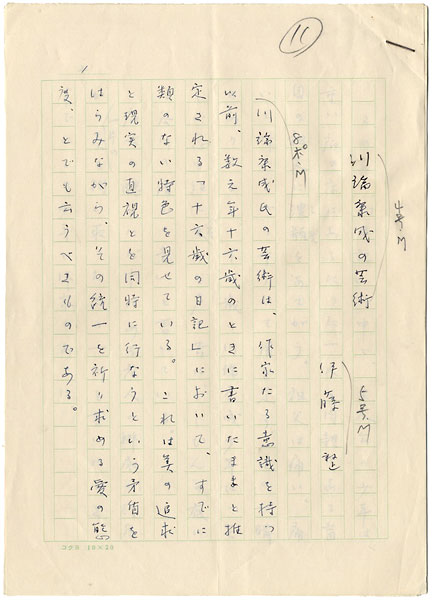 11
4号M
川端康成の芸術
5号M
伊藤整
8ポ.M
川端康成氏の芸術は、作家たる意識を持つ
以前、数え年十六歳のときに書いたままと推
定される「十六歳の日記」において、すでに
類のない特色を見せている。これは美の追求
と現実の直視とを同時に行なうという矛盾を
はらみながら、その統一を祈り求める愛の態
度、とでも言うべきものである。
コクヨ 10×20